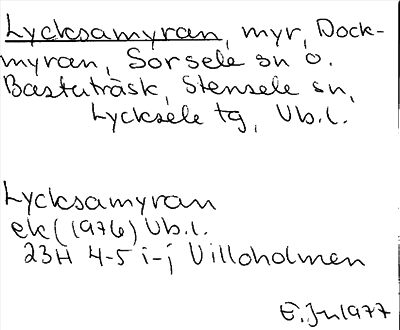 Lycksamyran, myr, Dock-
myran, Sorsele sn o.
Bastuträsk, Stensele sn,
Lycksele tg, Vb.l.
Lycksamyran
ek (1976) Vb.l.
23H 4-5 i-j Villoholmen
E. Jn 1977